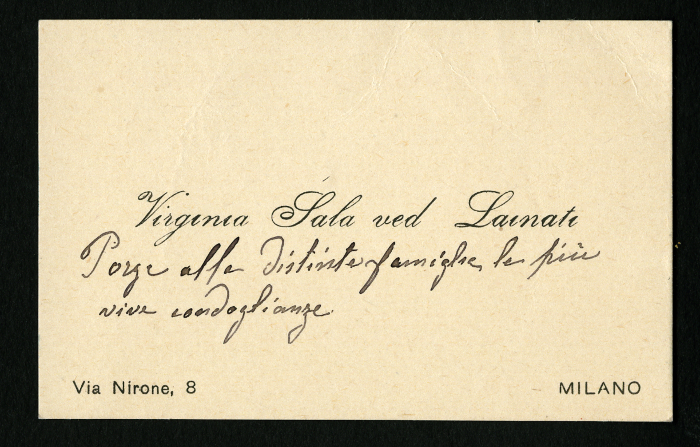 Virginia Sala ved Lainati
Porge alle distinte famiglie le più
vive condoglianze.
Via Nirone, 8
MILANO